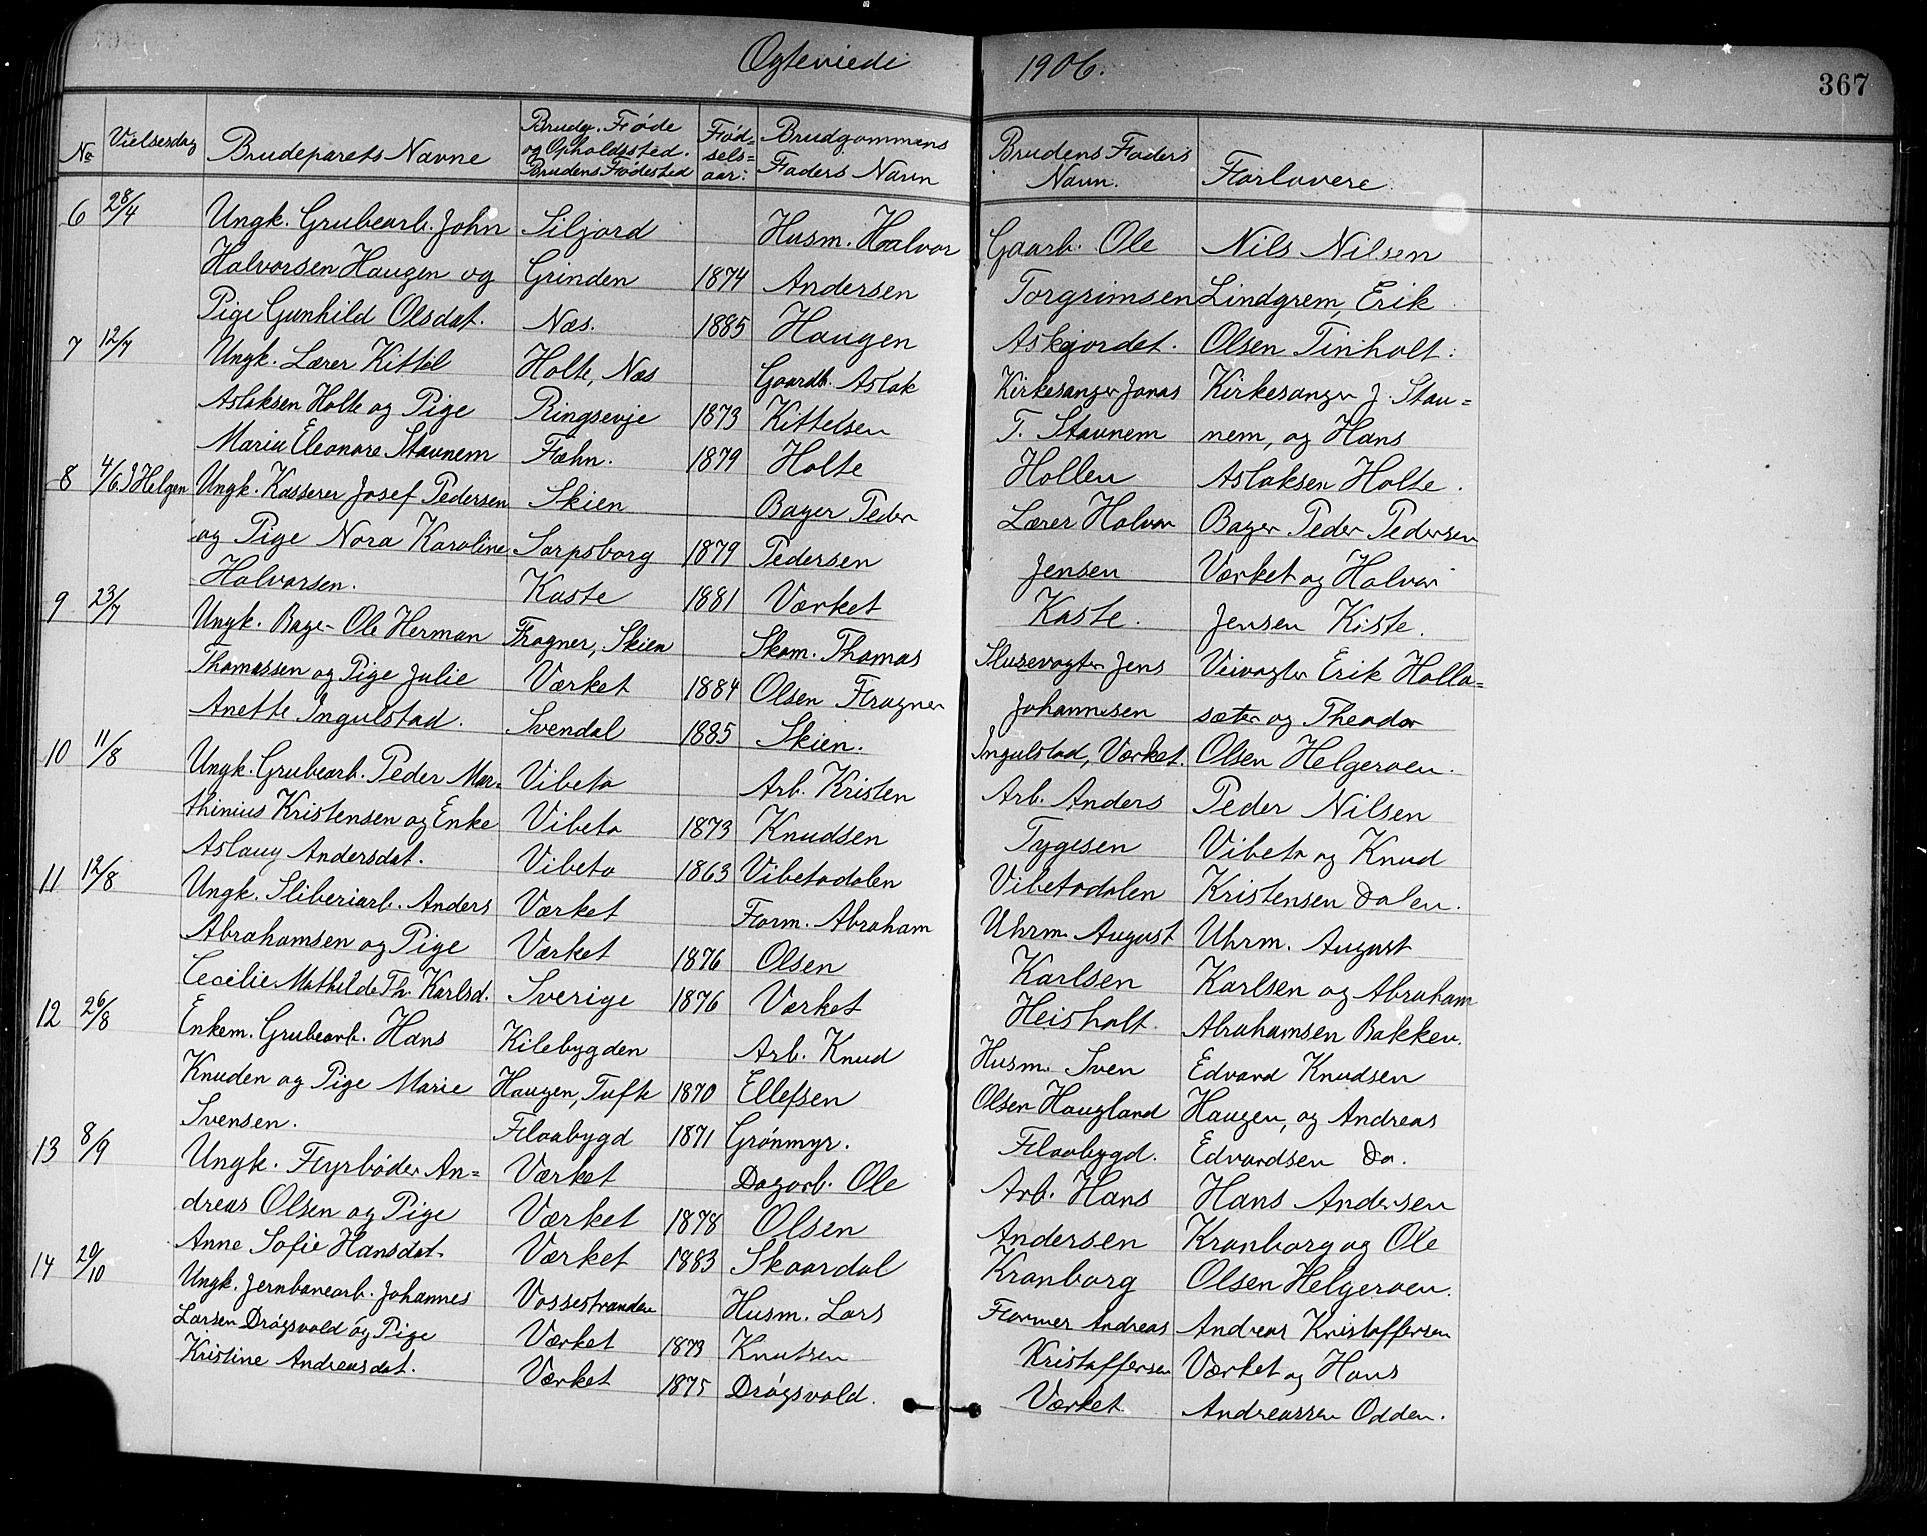 Ogteviede 1906.
367
No
Vielsesdag
Brudeparets Navne
Brudg. Føde
og Opholdssted.
Brudens Fødested
Fød=
sels=
aar:
Brudgommens
Faders Navn
Brudens Faders
Navn.
Forlovere
6 28/4 Ungk. Grubearb. John Siljord Husm. Halvor Gaarb. Ole Nils Nilsen
Halvorsen Haugen og Grinden 1874 Andersen Torgrimsen Lindgrem, Erik
Pige Gunhild Olsdat. Næs. 1885 Haugen Askjordet. Olsen Tinholt.
7 12/7 Ungk. Lærer Kittel Holte, Næs Gaardb. Aslak Kirkesanger Jonas Kirkesanger J. Stav=
Aslaksen Holte og Pige Ringsevje 1873 Kittelsen T. Stavnem nem, og Hans
Marie Eleonore Stavnem Fæhn. 1879 Holte Hollen Aslaksen Holte.
8 4/6 I Helgen Ungk. Kasserer Josef Pedersen Skien Bager Peder Lærer Halvor Bager Peder Pedersen
og Pige Nora Karoline Sarpsborg 1879 Pedersen Jensen Værket og Halvor
Halvorsen. Kaste 1881 Værket Kaste. Jensen Kaste.
9 23/7 Ungk. Bager Ole Herman Frogner, Skien Skom. Thomas Slusevogter Jens Veivogter Erik Holla=
Thomassen og Pige Julie Værket 1884 Olsen Frogner Johannesen sæter og Theodor
Anette Ingulstad. Svendal 1885 Skien. Ingulstad, Værket. Olsen Helgeroen.
10 11/8 Ungk. Grubearb. Peder Mar= Vibeto Arb. Kristen Arb. Anders Peder Nilsen
thinius Kristensen og Enke Vibeto 1873 Knudsen Tygesen Vibeto og Knud
Aslaug Andersdat. Vibeto 1863 Vibetodalen Vibetodalen Kristensen Dalen.
11 12/8 Ungk. Sliberiarb. Anders Værket Form. Abraham Uhrm. August Uhrm. August
Abrahamsen og Pige Værket 1876 Olsen Karlsen Karlsen og Abraham
Cecilie Mathilde Th. Karlsd. Sverige 1876 Værket Heisholt. Abrahamsen Bakken.
12 26/8 Enkem. Grubearb. Hans Kilebygden Arb. Knud Husm. Sven Edvard Knudsen
Knuden og Pige Marie Haugen, Tufte 1870 Ellefsen Olsen Haugland Haugen, og Andreas
Svensen. Flaabygd 1871 Grönmyr. Flaabygd. Edvardsen Do.
13 8/9 Ungk. Fyrbøder An= Værket Dagarb. Ole Arb. Hans Hans Andersen
dreas Olsen og Pige Værket 1878 Olsen Andersen Kronborg og Ole
Anne Sofie Hansdat. Værket 1883 Skaardal Kronborg Olsen Helgeroen.
14 20/10 Ungk. Jernbanearb. Johannes Vossestranden Husm. Lars Former Andreas Andreas Kristoffersen
Larsen Drøgsvold og Pige Værket 1879 Knutsen Kristoffersen Værket og Hans
Kristine Andreasdat. Værket 1875 Drøgsvold. Værket Andreassen Odden.